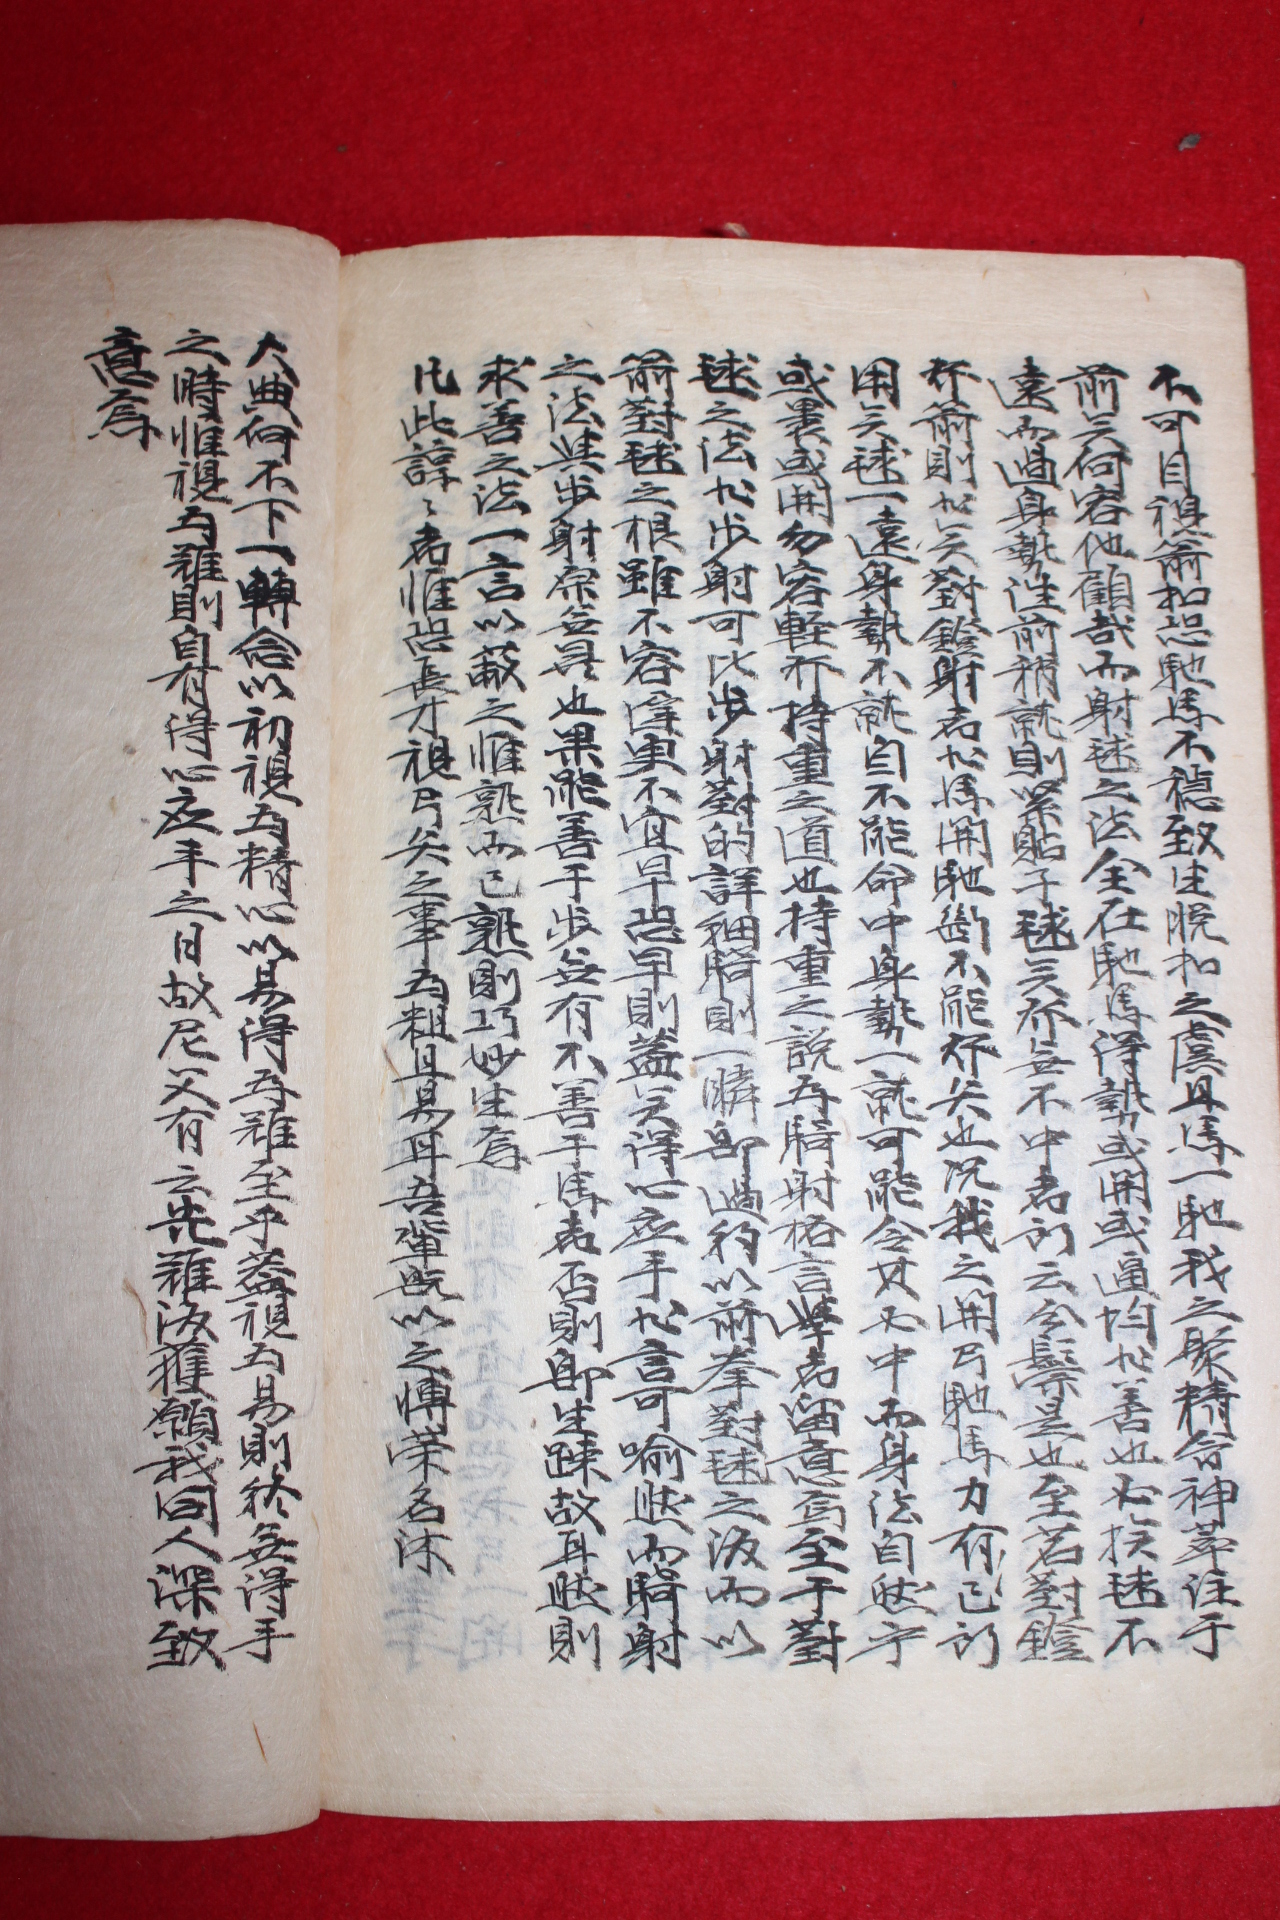 不可目視箭扣恐馳馬不穩致生脫扣之虞且馬一馳我之聚精會神專注于
前矣何容他顧哉而射毬之法全在馳馬得勢或開或逼均非善也如挨毬不
遠而過身勢往前稍就則緊貼于毬矣發無不中者所云分鬃是也至若對鐙
發箭則非矣對鐙射者非馬開馳斷不能發矢也況我之開弓馳馬力有已所
用矣毬一遠身勢不就自不能命中身勢一就可能令其不中而身法自然守
或裹或開勿容輕發持重之道也持重之說乃騎射格言學者留意焉至于對
毬之法非步射可比步射對的詳細騎則一瞬即過約以前拳對毬之後而以
箭對毬之根雖不容遲更不宜早恐早則蓋矣得心應手非言可喻然而騎射
之法與步射原無異也果能善于步無有不善于馬者否則即生疎故耳然則
求善之法一言以蔽之惟熟而已熟則巧妙生焉
凡此諄〻者惟恐長才視弓矢之事為粗且易耳吾輩既以之博榮名沐
大典何不下一轉念以初視為精心以易得為難至乎蓋視為易則終無得手
之時惟視為難則自有得心應手之日故尼父有云先難後獲願我同人深致
意焉